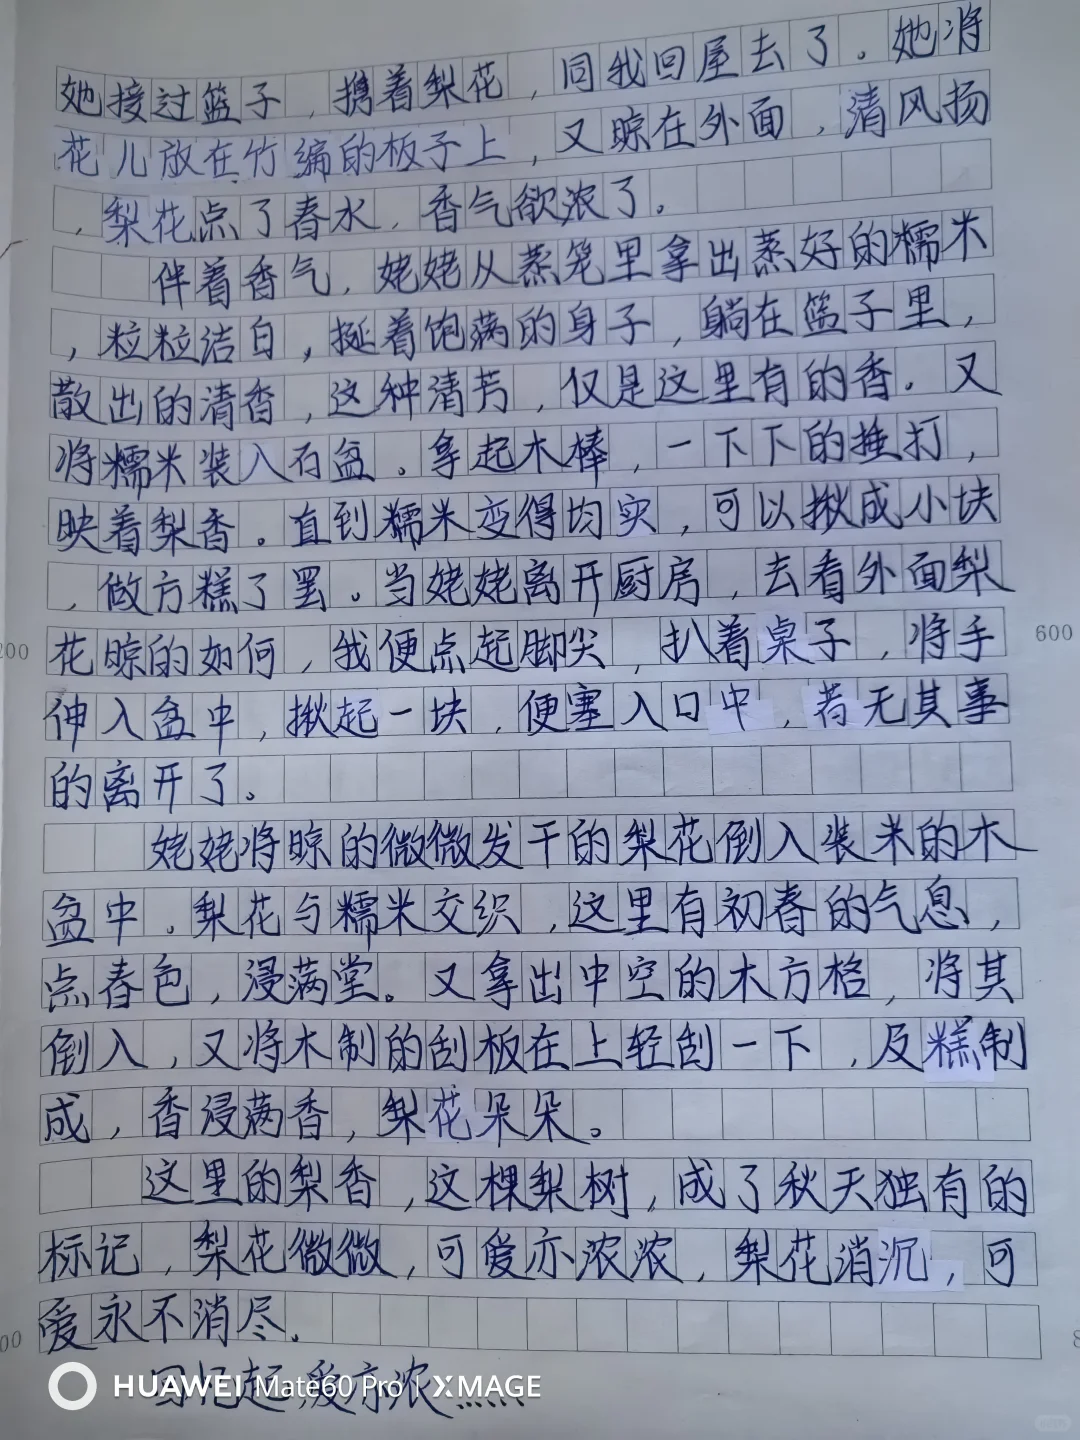 她接过篮子，携着梨花，同我回屋去了。她将
花儿放在竹编的板子上，又晾在外面，清风扬
，梨花点了春水，香气欲浓了。
伴着香气，姥姥从蒸笼里拿出蒸好的糯米
，粒粒洁白，挺着饱满的身子，躺在篮子里，
散出的清香，这种清芳，仅是这里有的香。又
将糯米装入石盆。拿起木棒，一下下的捶打，
映着梨香。直到糯米变得均实，可以揪成小块
，做方糕了罢。当姥姥离开厨房，去看外面梨
花晾的如何，我便点起脚尖，扒着桌子，将手
伸入盆中，揪起一块，便塞入口中，若无其事
的离开了。
姥姥将晾的微微发干的梨花倒入装米的木
盆中。梨花与糯米交织，这里有初春的气息，
点春色，浸满堂。又拿出中空的木方格，将其
倒入，又将木制的刮板在上轻刮一下，及糕制
成，香浸满香，梨花朵朵。
这里的梨香，这棵梨树，成了秋天独有的
标记，梨花微微，可爱亦浓浓，梨花消沉，可
爱永不消尽。
回忆起，爱亦浓……
200
600
HUAWEI Mate60 Pro | XMAGE